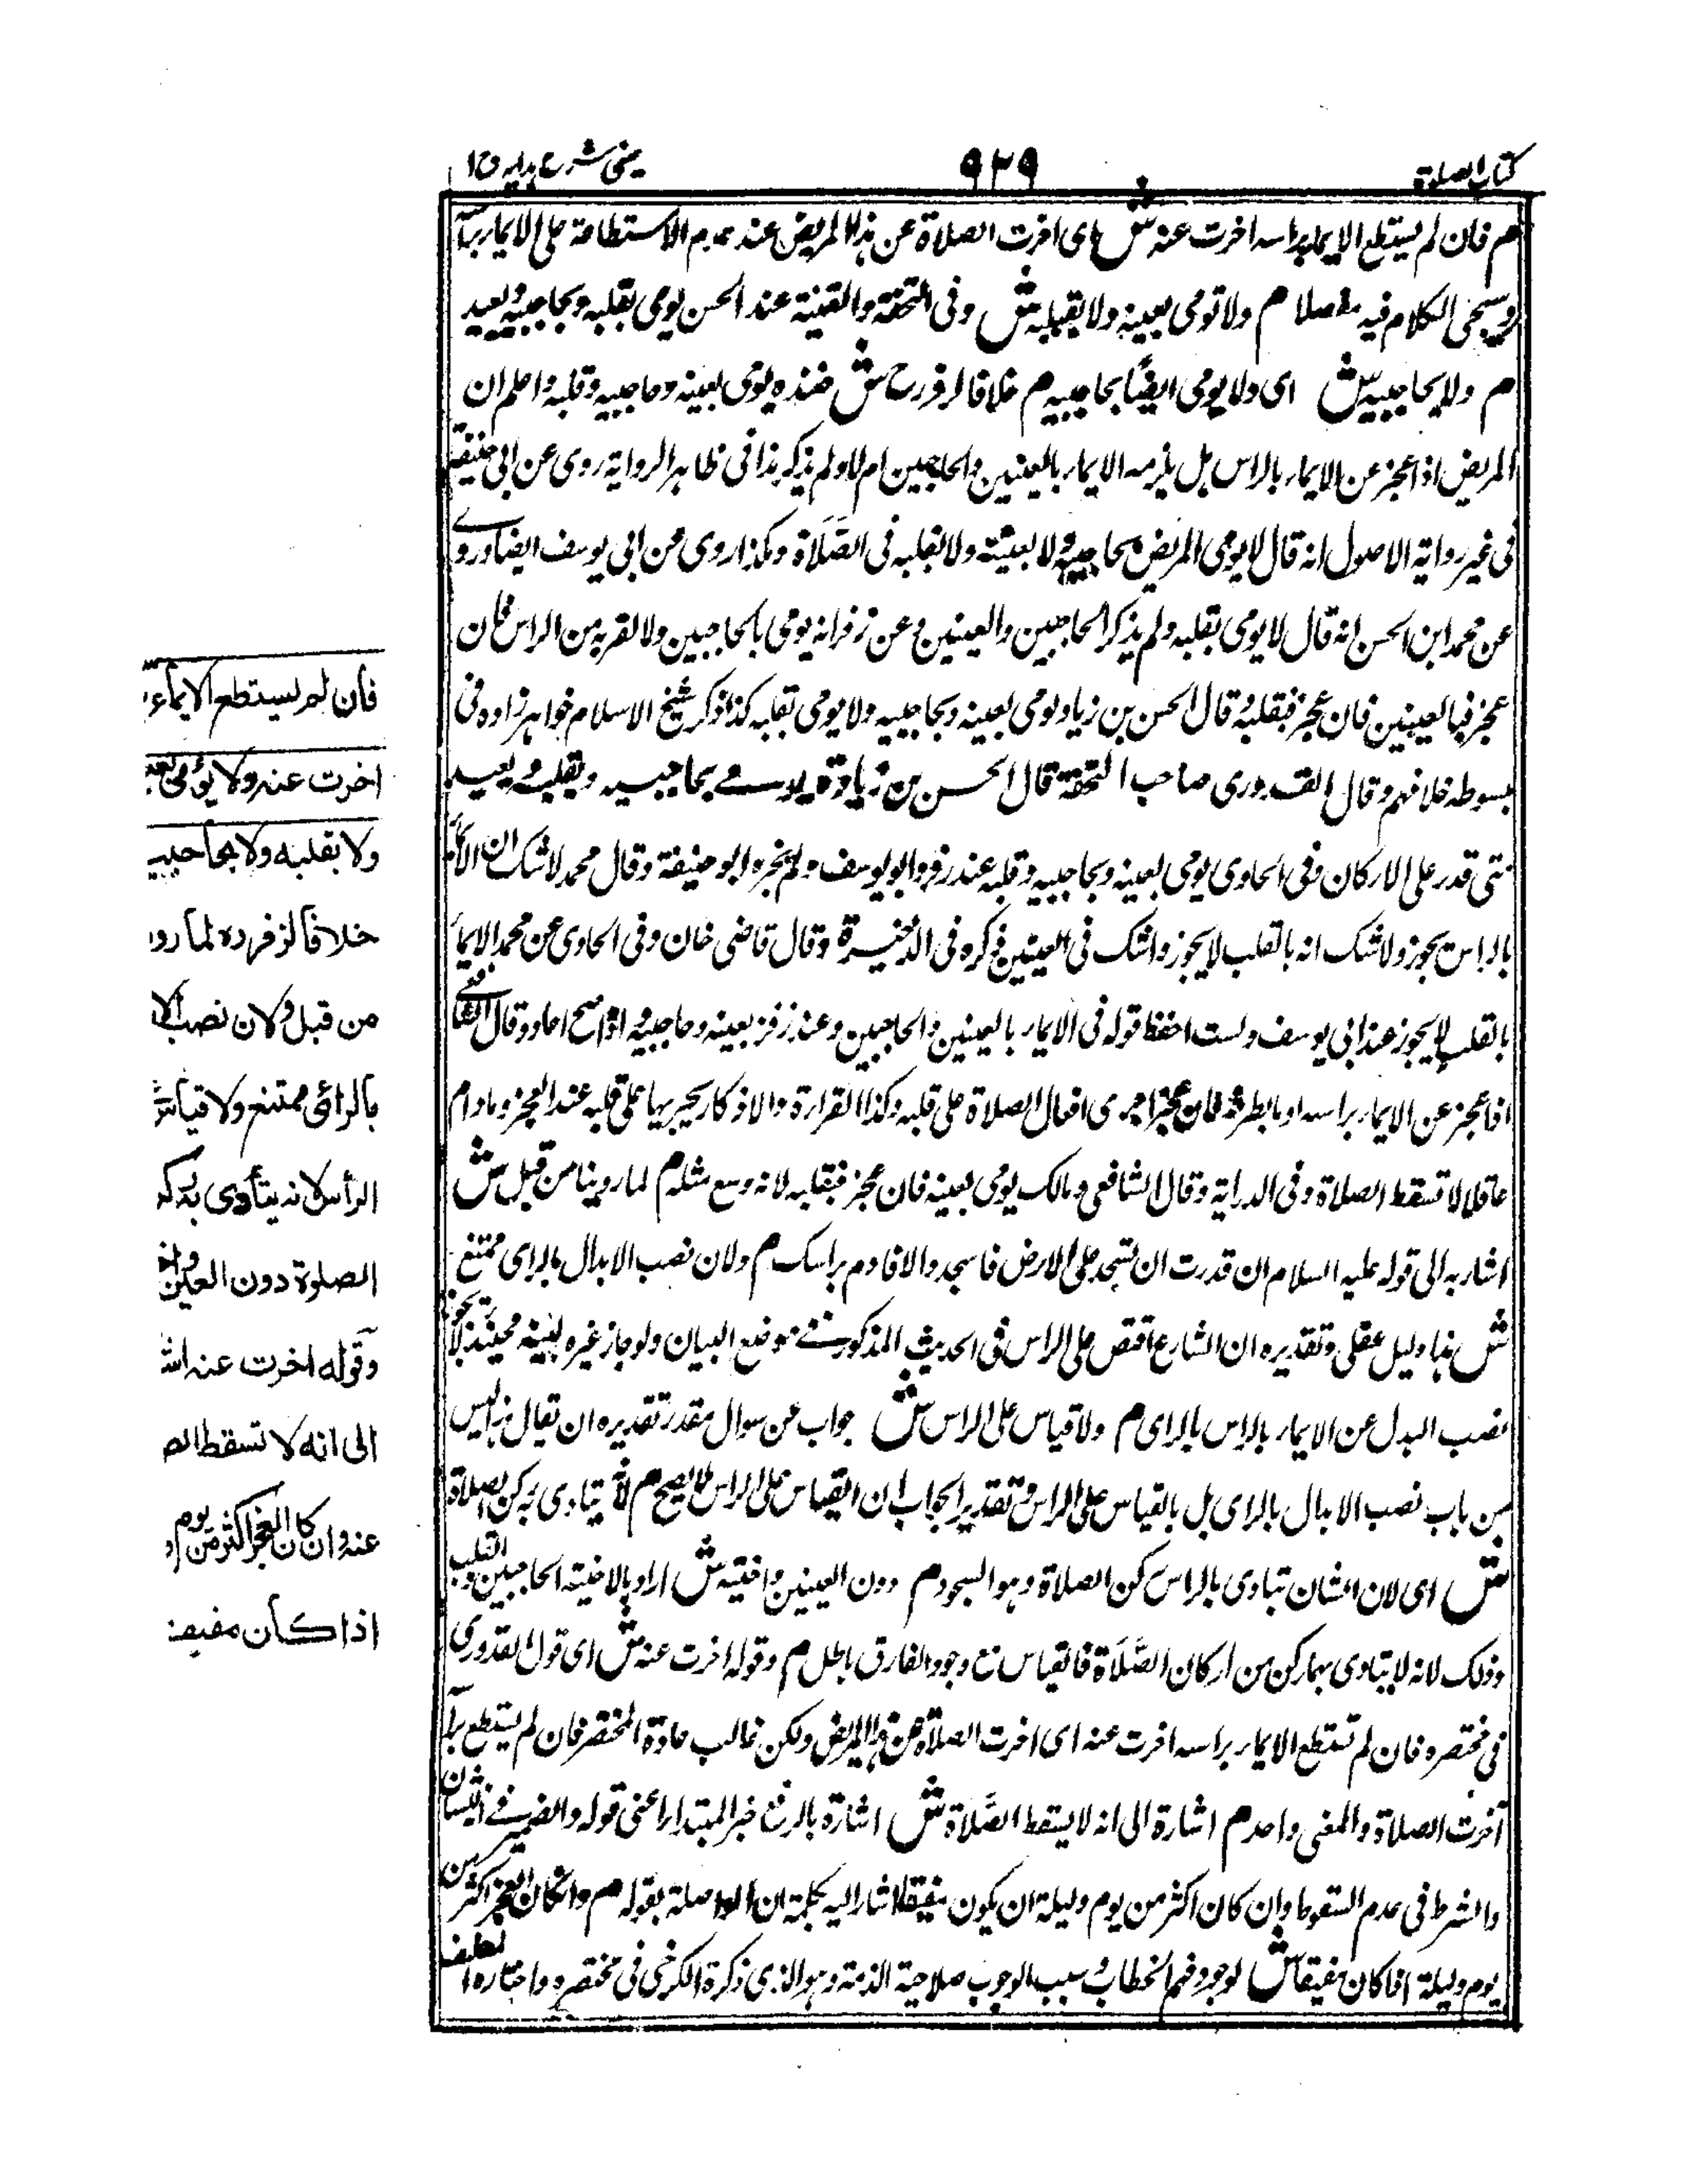 كتاب الصلاة
٩٢٩
عینی شرح ہدایہ ج ١
م فان لم يستطع الايماء براسه اخرت عنه ش اى اخرت الصلاة عن هذا المريض عند عدم الاستطاعة على الايماء براسه
وسيجى الكلام فيه مفصلا م ولا تومى بعينه ولا بقلبه ش وفى التحفة والقنية عند الحسن يومى بقلبه وبحاجبيه ويعيد
م ولا بحاجبيه ش اى ولا يومى ايضًا بحاجبيه م خلافا لزفر رح ش فعنده يومى بعينه وحاجبيه وقلبه واعلم ان
المريض اذا عجز عن الايماء بالراس هل يلزمه الايماء بالعينين والحاجبين ام لا ولم يذكر هذا فى ظاهر الرواية روى عن ابى حنيفة
فى غير رواية الاصول انه قال لا يومى المريض بحاجبيه ولا بعينه ولا بقلبه فى الصَّلَاة وهكذا روى عن ابى يوسف ايضا وروى
عن محمد ابن الحسن انه قال لا يومى بقلبه ولم يذكر الحاجبين والعينين وعن زفر انه يومى بالحاجبين ولا لقربه من الراس فان
عجز فبالعينين فان عجز فبقلبه وقال الحسن بن زياد يومى بعينه وبحاجبيه ولا يومى بقلبه كذا ذكر شيخ الاسلام خواهر زاده فى
مبسوطه خلافهم وقال القدورى صاحب التحفة قال الحسن بن زياد يومى بحاجبيه وبقلبه ويعيد
متى قدر على الاركان وفى الحاوى يومى بعينه وبحاجبيه وقلبه عند زفر وابو يوسف ولم يجزه ابو حنيفة وقال محمد لا شك ان الايماء
بالراس يجوز ولا شك انه بالقلب لا يجوز واشك فى العينين ذكره فى الذخيرة وقال قاضى خان وفى الحاوى عن محمد الايماء
بالقلب لا يجوز عند ابى يوسف ولست احفظ قوله فى الايماء بالعينين والحاجبين وعند زفر بعينه وحاجبيه اذا صح اعاد وقال الشافعى
اذا عجز عن الايماء براسه اوما بطرفه فان عجز اجرى افعال الصلاة على قلبه وكذا القراءة والاذكار يجريها على قلبه عند العجز وما دام
عاقلا لا تسقط الصلاة وفى الدراية وقال الشافعى ومالك يومى بعينه فان عجز فبقلبه لانه وسع مثله م لما روينا من قبل ش
اشار به الى قوله عليه السلام ان قدرت ان تسجد على الارض فاسجد والا فاوم براسك م ولان نصب الابدال بالراى ممتنع
ش هذا دليل عقلى وتقديره ان الشارع اقتصر على الراس فى الحديث المذكور فى موضع البيان ولو جاز غيره لبينه فحينئذ لا يجوز
نصب البدل عن الايماء بالراس بالراى م ولا قياس على الراس ش جواب عن سوال مقدر تقديره ان يقال هذا ليس
من باب نصب الابدال بالراى بل بالقياس على الراس وتقدير الجواب ان القياس على الراس لا يصح م لانه يتادى به ركن الصلاة
ش اى لان الشان يتادى بالراس ركن الصلاة وهو السجود م دون العينين واختيه ش اراد بالاختيه الحاجبين والقلب
وذلك لانه لا يتادى بهما ركن من اركان الصَّلَاة فالقياس مع وجود الفارق باطل م وقوله اخرت عنه ش اى قول القدورى
فى مختصره فان لم تستطع الايماء براسه اخرت عنه اى اخرت الصلاة عن هذا المريض ولكن غالب عادة المختصر فان لم يستطع براسه
آخرت الصلاة والمعنى واحد م اشارة الى انه لا يسقط الصَّلَاة ش اشارة بالرفع خبر المبتداء اعنى قوله والضمير فى انه للشان
والشرط فى عدم السقوط وان كان اكثر من يوم وليلة ان يكون مفيقا اشار اليه بكلمة ان الواصلة بقوله م وان كان العجز اكثر من
يوم وليلة اذا كان مفيقا ش لوجود فهم الخطاب وسبب الوجوب صلاحية الذمة وهو الذى ذكره الكرخى فى مختصره واختاره
فأن لم يستطع الايمآء
اخرت عنه ولا يؤمى
ولا بقلبه ولا بحاجبيه
خلافًا لزفر ره لما رو
من قبل ولان نصب الا
بالرائى ممتنع ولا قياس
الرأس لانه يتأدى به ركن
الصلوة دون العين
وقوله اخرت عنه اشا
الى انه لا تسقط الص
عنه وان كان العجز اكثر من يوم
اذا كأن مفيقا